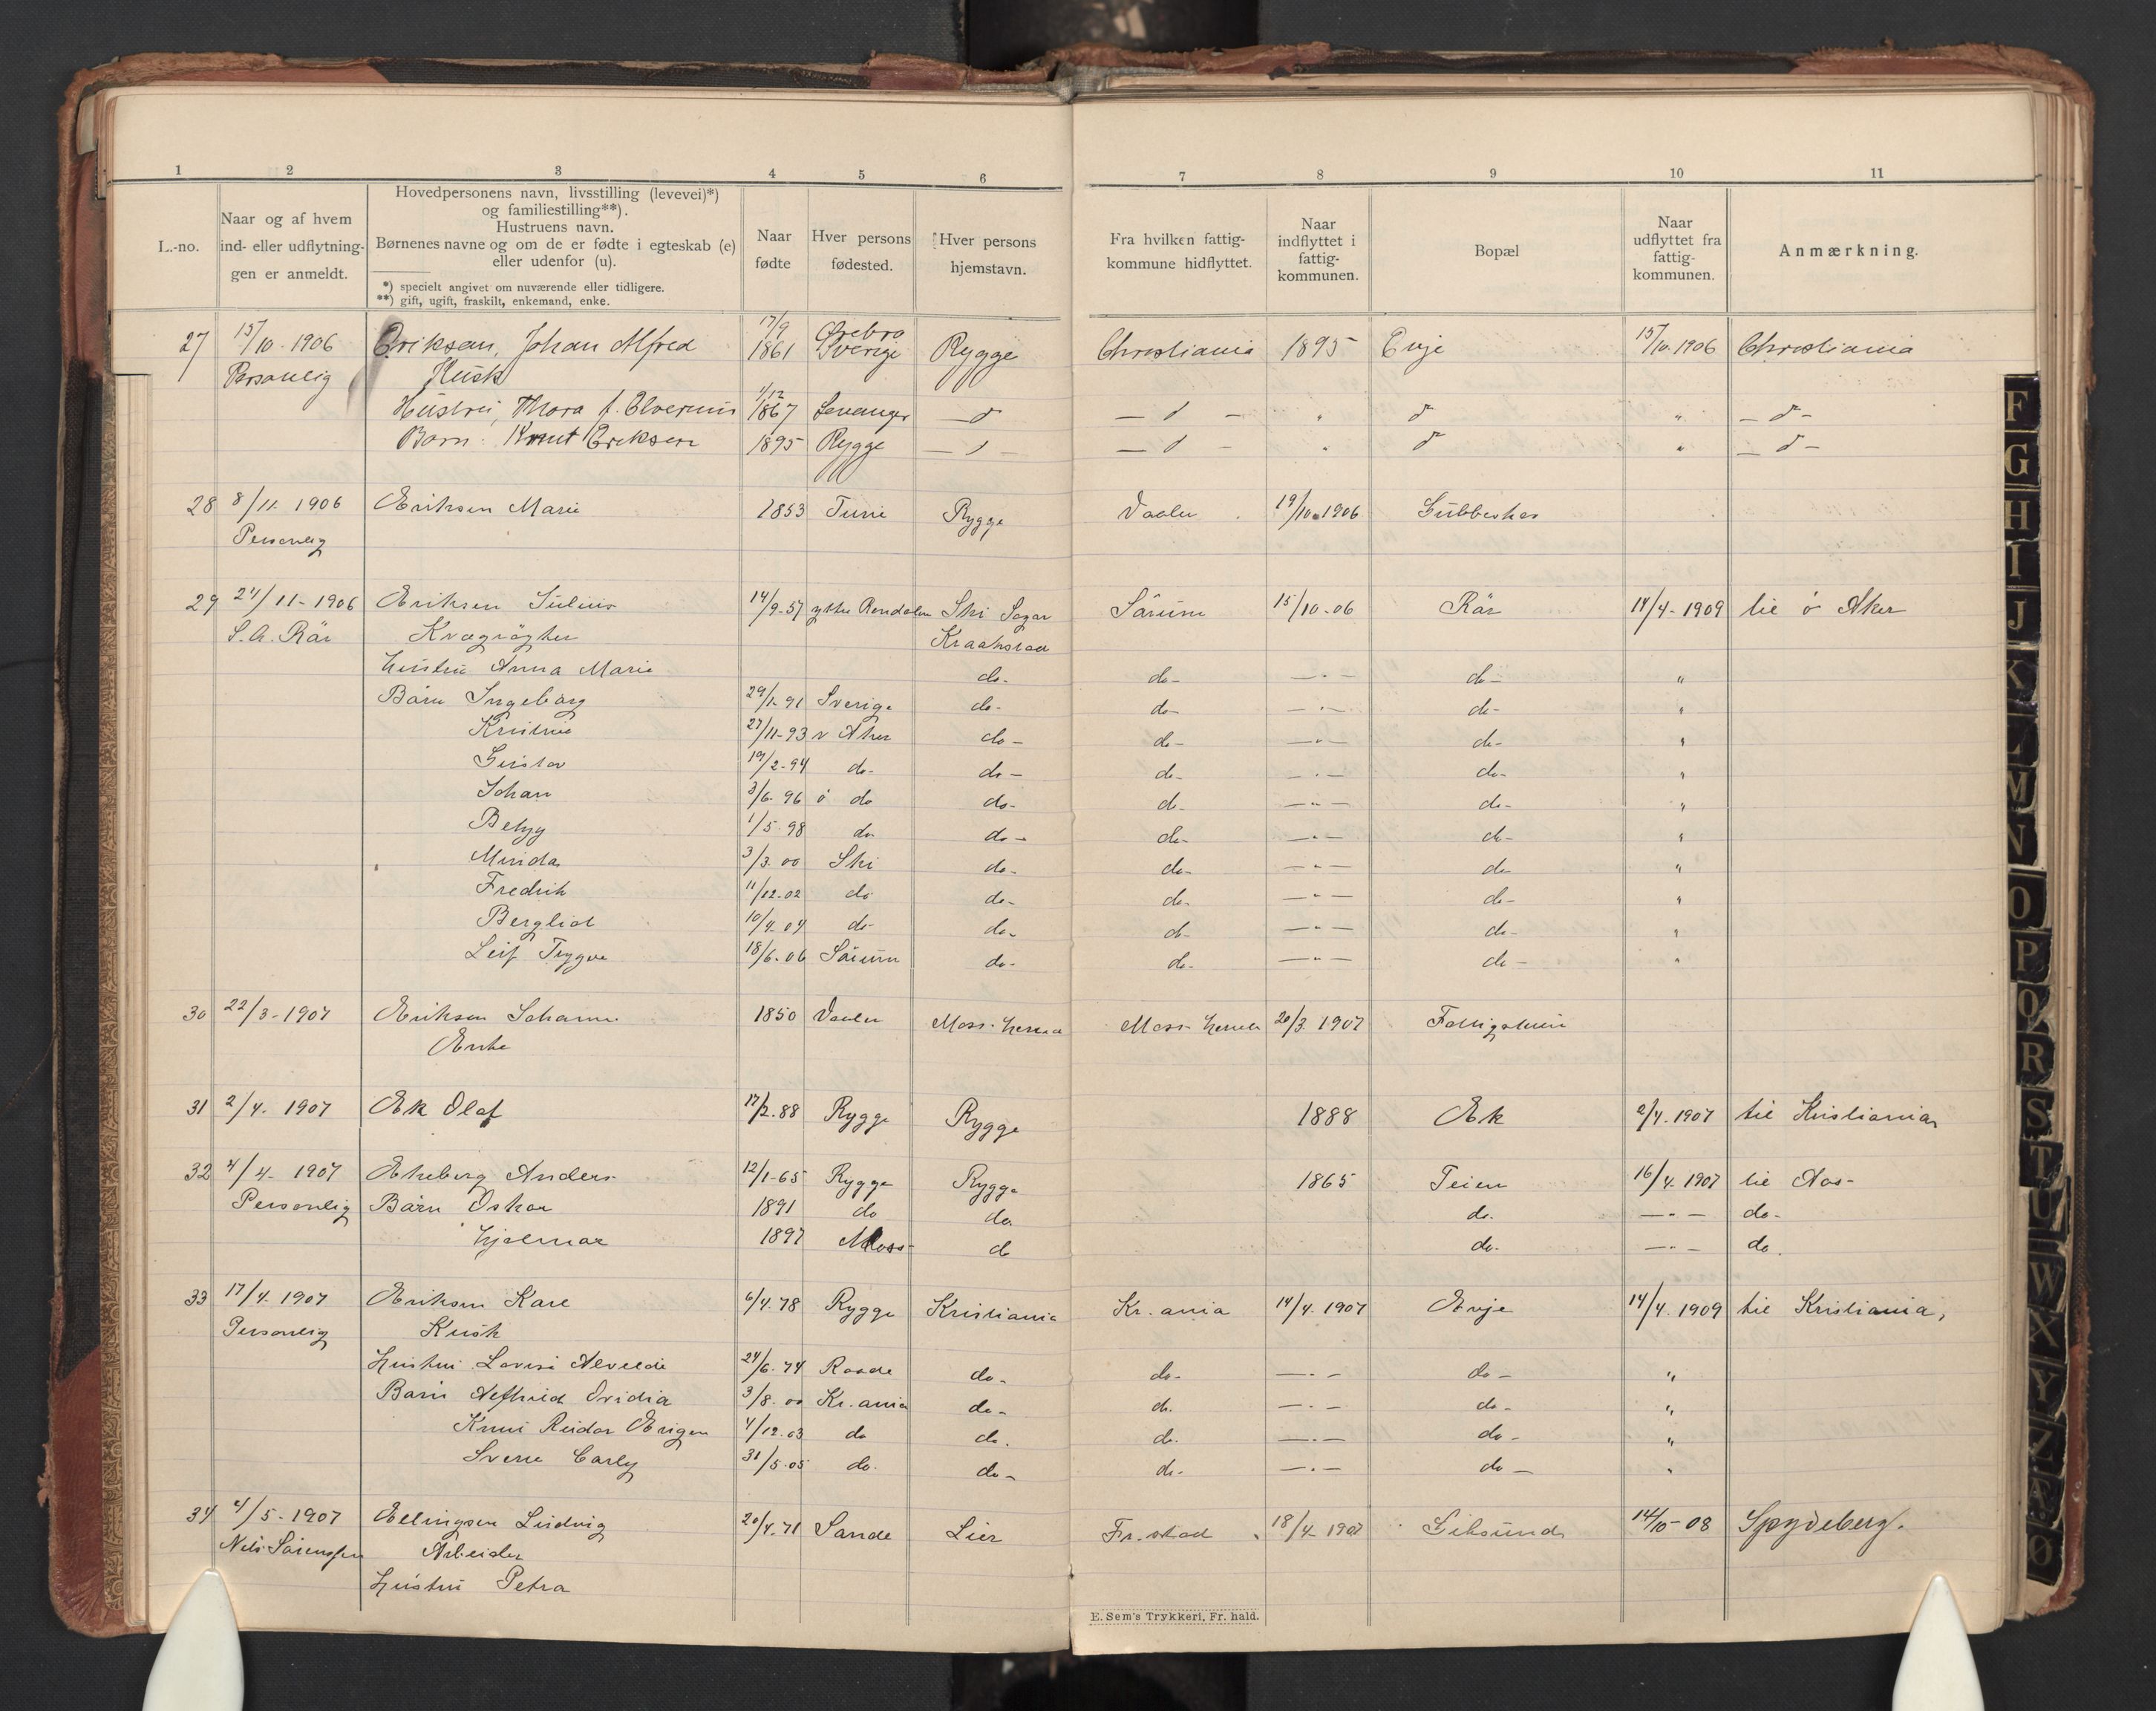 1 2 3 4 5 6 7 8 9 10 11
L.-no.
Naar og af hvem ind- eller udflytningen er anmeldt.
Hovedpersonens navn, livsstilling (levevei)*) og familiestilling**).
Hustruens navn.
Børnenes navne og om de er fødte i egteskab (e) eller udenfor (u).
*) specielt angivet om nuværende eller tidligere.
**) gift, ugift, fraskilt, enkemand, enke.
Naar fødte
Hver persons fødested.
Hver persons hjemstavn.
Fra hvilken fattigkommune hidflyttet.
Naar indflyttet i fattigkommunen.
Bopæl
Naar udflyttet fra fattigkommunen.
Anmærkning.
27 15/10-1906 Eriksen, Johan Alfred 17/9 1861 Örebro Sverige Rygge Christiania 1895 Evje 15/10.1906 Christiania
Personlig Kusk
Hustru, Thora f. Elverum 1/12 1867 Levanger — d — d — " d " — d —
Barn: Knut Eriksen 1895 Rygge — d — — d — " d " — d —
28 8/11 1906 Eriksen Marie 1853 Tune Rygge Vaaler 19/10.1906 Gubbeskas
Personlig
29 24/11-1906 Eriksen Julius 14/9-57 yttre Rendalen Ski Sogn Sörum 15/10-06 Rör 14/4-1909 til ö Aker
S. A. Rör Kvægrögter Kraakstad
Hustru Anna Marie do- do- —"— do- "
Börn Ingeborg 29/1-91 Sverige do- do- —"— do- "
Kristine 27/11-93 v Aker do- do- —"— do- "
Gustav 19/2-94 do- do- do- —"— do- "
Johan 3/6-96 ö do do- do- —"— do- "
Betzy 1/5-98 do do- do- —"— do- "
Minda 3/3.00 Ski do- do- —"— do "
Fredrik 11/12-02 do do- do- —"— do- "
Bergliot 10/4-04 do- do- do- —"— do- "
Leif Trygve 18/6-06 Sörum do- do- —"— do- "
30 22/3-1907 Eriksen Johanne 1850 Vaaler Moss-herred Moss-herred 20/3.1907 Fattigheim
Enke
31 2/4.1907 Ek Olaf 17/2.88 Rygge Rygge 1888 Ek 2/4.1907 til Kristiania
32 4/4-1907 Ekeberg Anders 12/1-65 Rygge Rygge 1865 Teien 16/4-1907 til Aas-
Personlig Börn Oskar 1891 do do do. —"— do-
Hjalmar 1897 Moss- do do. —"— do.
33 17/4.1907 Eriksen Karl 6/4.78 Rygge Kristiania Kr.ania 14/4.1907 Evje 14/4.1909 til Kristiania,
Personlig Kusk
Hustru Lovise Alvilde 24/6.74 Raade do- do- —"— do- "
Börn Alfhild Ovidia 3/8.00 Kr.ania do- do. —"— do- "
Knut Reidar Erigen 4/12.03 do do. do. —"— do- "
Sverre Carly 31/5-05 do. do- do- —"— do- "
34 4/5-1907 Ellingsen Ludvig 20/4.71 Sande Lier Fr.stad 18/4-1907 Geksund 14/10-08 Spydeberg.
Nils Sörenssen Arbeider
Hustru Petra
E. Sem's Trykkeri, Fr. hald.
F
G
H
I
J
K
L
M
N
O
P
Q
R
S
T
U
W
X
Y
Z
Æ
Ø